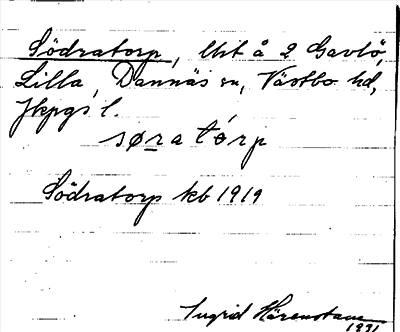 Södratorp, Utt å 2 Gavlö,
Lilla, Dannäs sn, Västbo hd,
Jkpgs l.
søratórp
Södratorp kb 1919
Ingrid Härenstam
1931